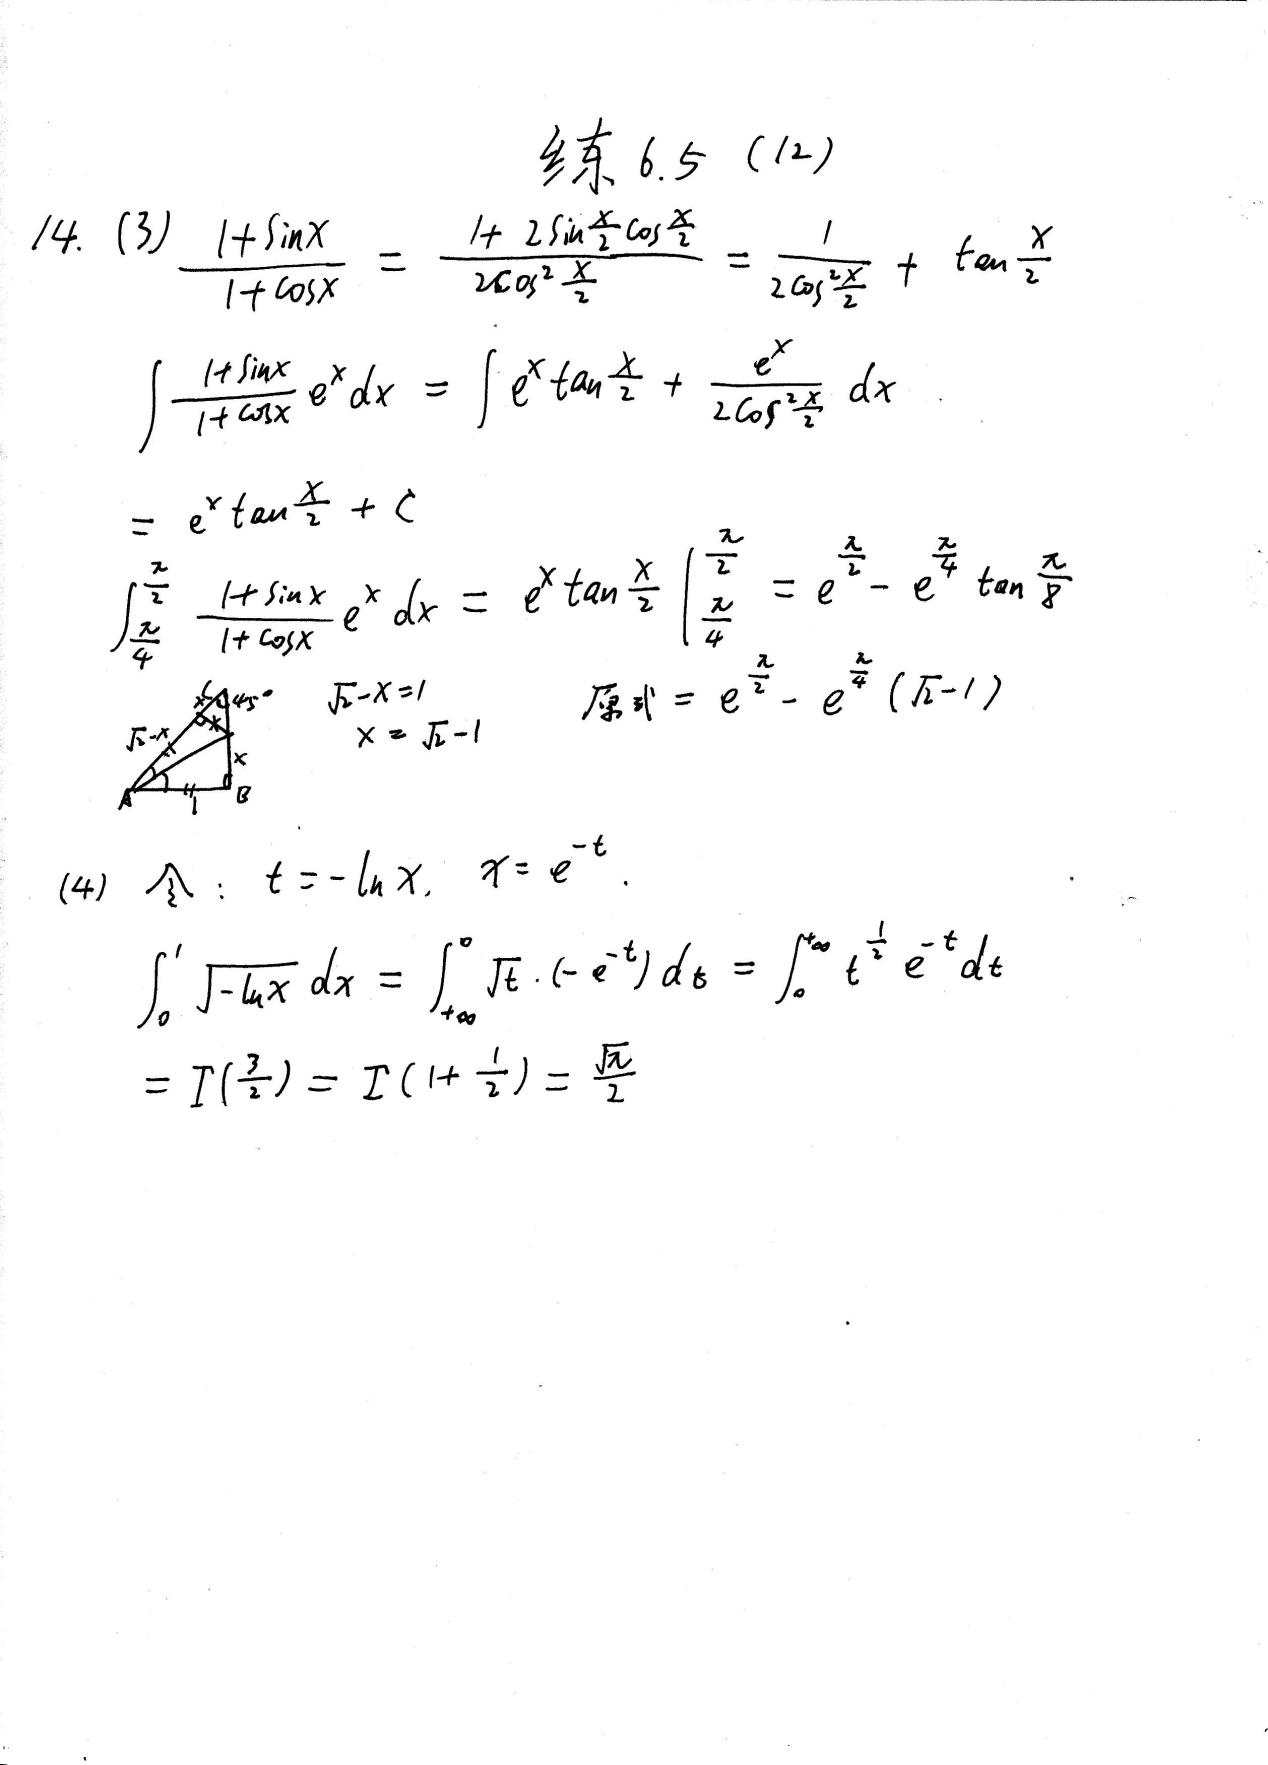 练 6.5 (12)
14. (3) \frac{1+sinx}{1+cosx} = \frac{1+2sin\frac{x}{2}cos\frac{x}{2}}{2cos^2\frac{x}{2}} = \frac{1}{2cos^2\frac{x}{2}} + tan\frac{x}{2}
∫ \frac{1+sinx}{1+cosx} e^x dx = ∫ e^x tan\frac{x}{2} + \frac{e^x}{2cos^2\frac{x}{2}} dx
= e^x tan\frac{x}{2} + C
∫_{\frac{π}{4}}^{\frac{π}{2}} \frac{1+sinx}{1+cosx} e^x dx = e^x tan\frac{x}{2} |_{\frac{π}{4}}^{\frac{π}{2}} = e^{\frac{π}{2}} - e^{\frac{π}{4}} tan\frac{π}{8}
C 45° x x √2-x x A 1 B
√2-x=1
x=√2-1
原式 = e^{\frac{π}{2}} - e^{\frac{π}{4}} (√2-1)
(4) 令: t=-lnx, x=e^{-t}.
∫_0^1 √{-lnx} dx = ∫_{+∞}^0 √t·(-e^{-t}) dt = ∫_0^{+∞} t^{\frac{1}{2}} e^{-t} dt
= I(\frac{3}{2}) = I(1+\frac{1}{2}) = \frac{√π}{2}